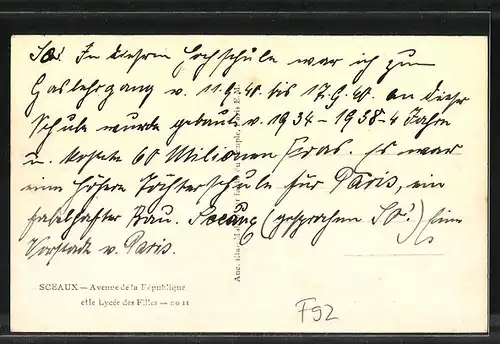 So! In dieser Hochschule war ich zum
Gaslehrgang v. 11.9.40. bis 17.9.40. an dieser
Schule wurde gebaut v. 1934 - 1938 - 4 Jahre
u. kostete 60 Milionen Frcs. Es war
eine höhere Töchterschule für Paris, ein
fabelhafter Bau. Sceaux (gesprochen So!) Eine
Vorstadt v. Paris.
SCEAUX — Avenue de la République
et le Lycée des Filles — no 11
F92